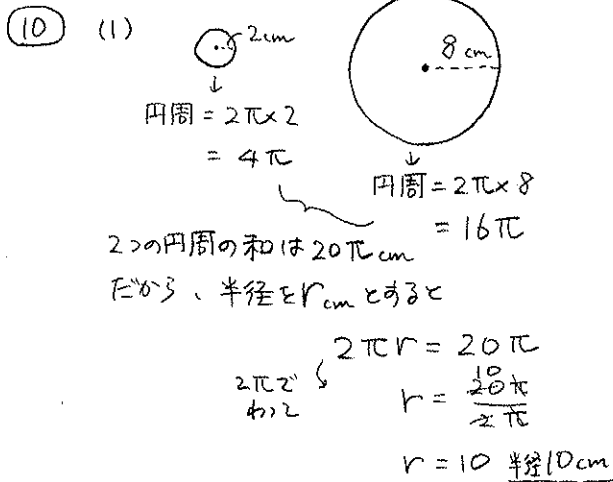 10 (1)
2cm
8cm
円周 = 2π×2
= 4π
円周 = 2π×8
= 16π
2つの円周の和は20πcm
だから、半径をrcmとすると
2πr = 20π
2πで
わって
r = 20π/2π
10
r = 10 半径10cm